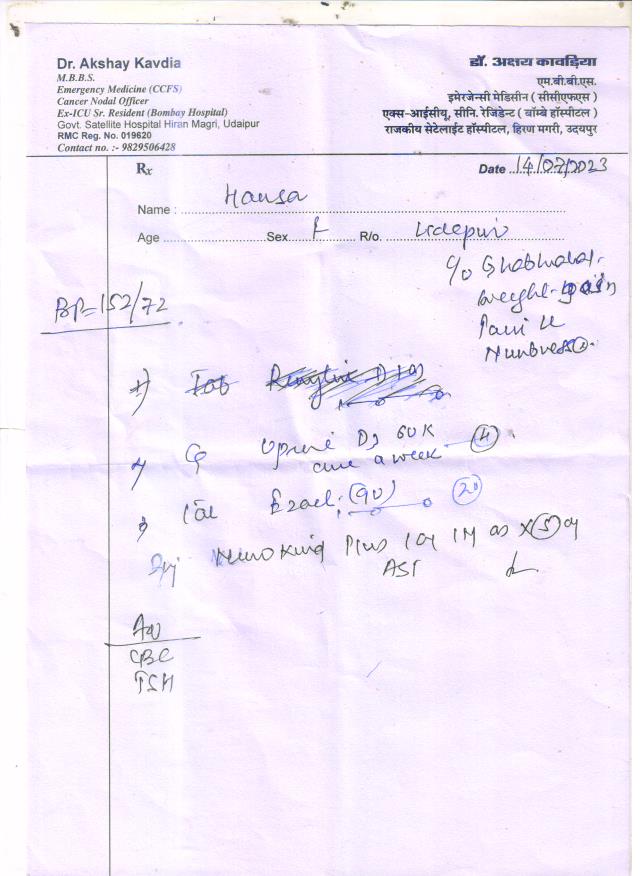 Dr. Akshay Kavdia
M.B.B.S.
Emergency Medicine (CCFS)
Cancer Nodal Officer
Ex-ICU Sr. Resident (Bombay Hospital)
Govt. Satellite Hospital Hiran Magri, Udaipur
RMC Reg. No. 019620
Contact no. :- 9829506428
डॉ. अक्षय कावड़िया
एम.बी.बी.एस.
इमरजेन्सी मेडिसीन ( सीसीएफएस )
एक्स-आईसीयू, सीनि. रेजिडेन्ट ( बॉम्बे हॉस्पीटल )
राजकीय सेटेलाईट हॉस्पिटल, हिरण मगरी, उदयपुर
Rx
Date 14/07/2023
Name : Hansa
Age Sex F R/o.
c/o
weight gain
Pain
BP=152/72
Tab
D3 60K
once a week 4
(90) 20
Inj Plus IM x 5
AST
Adv
CBC
TSH